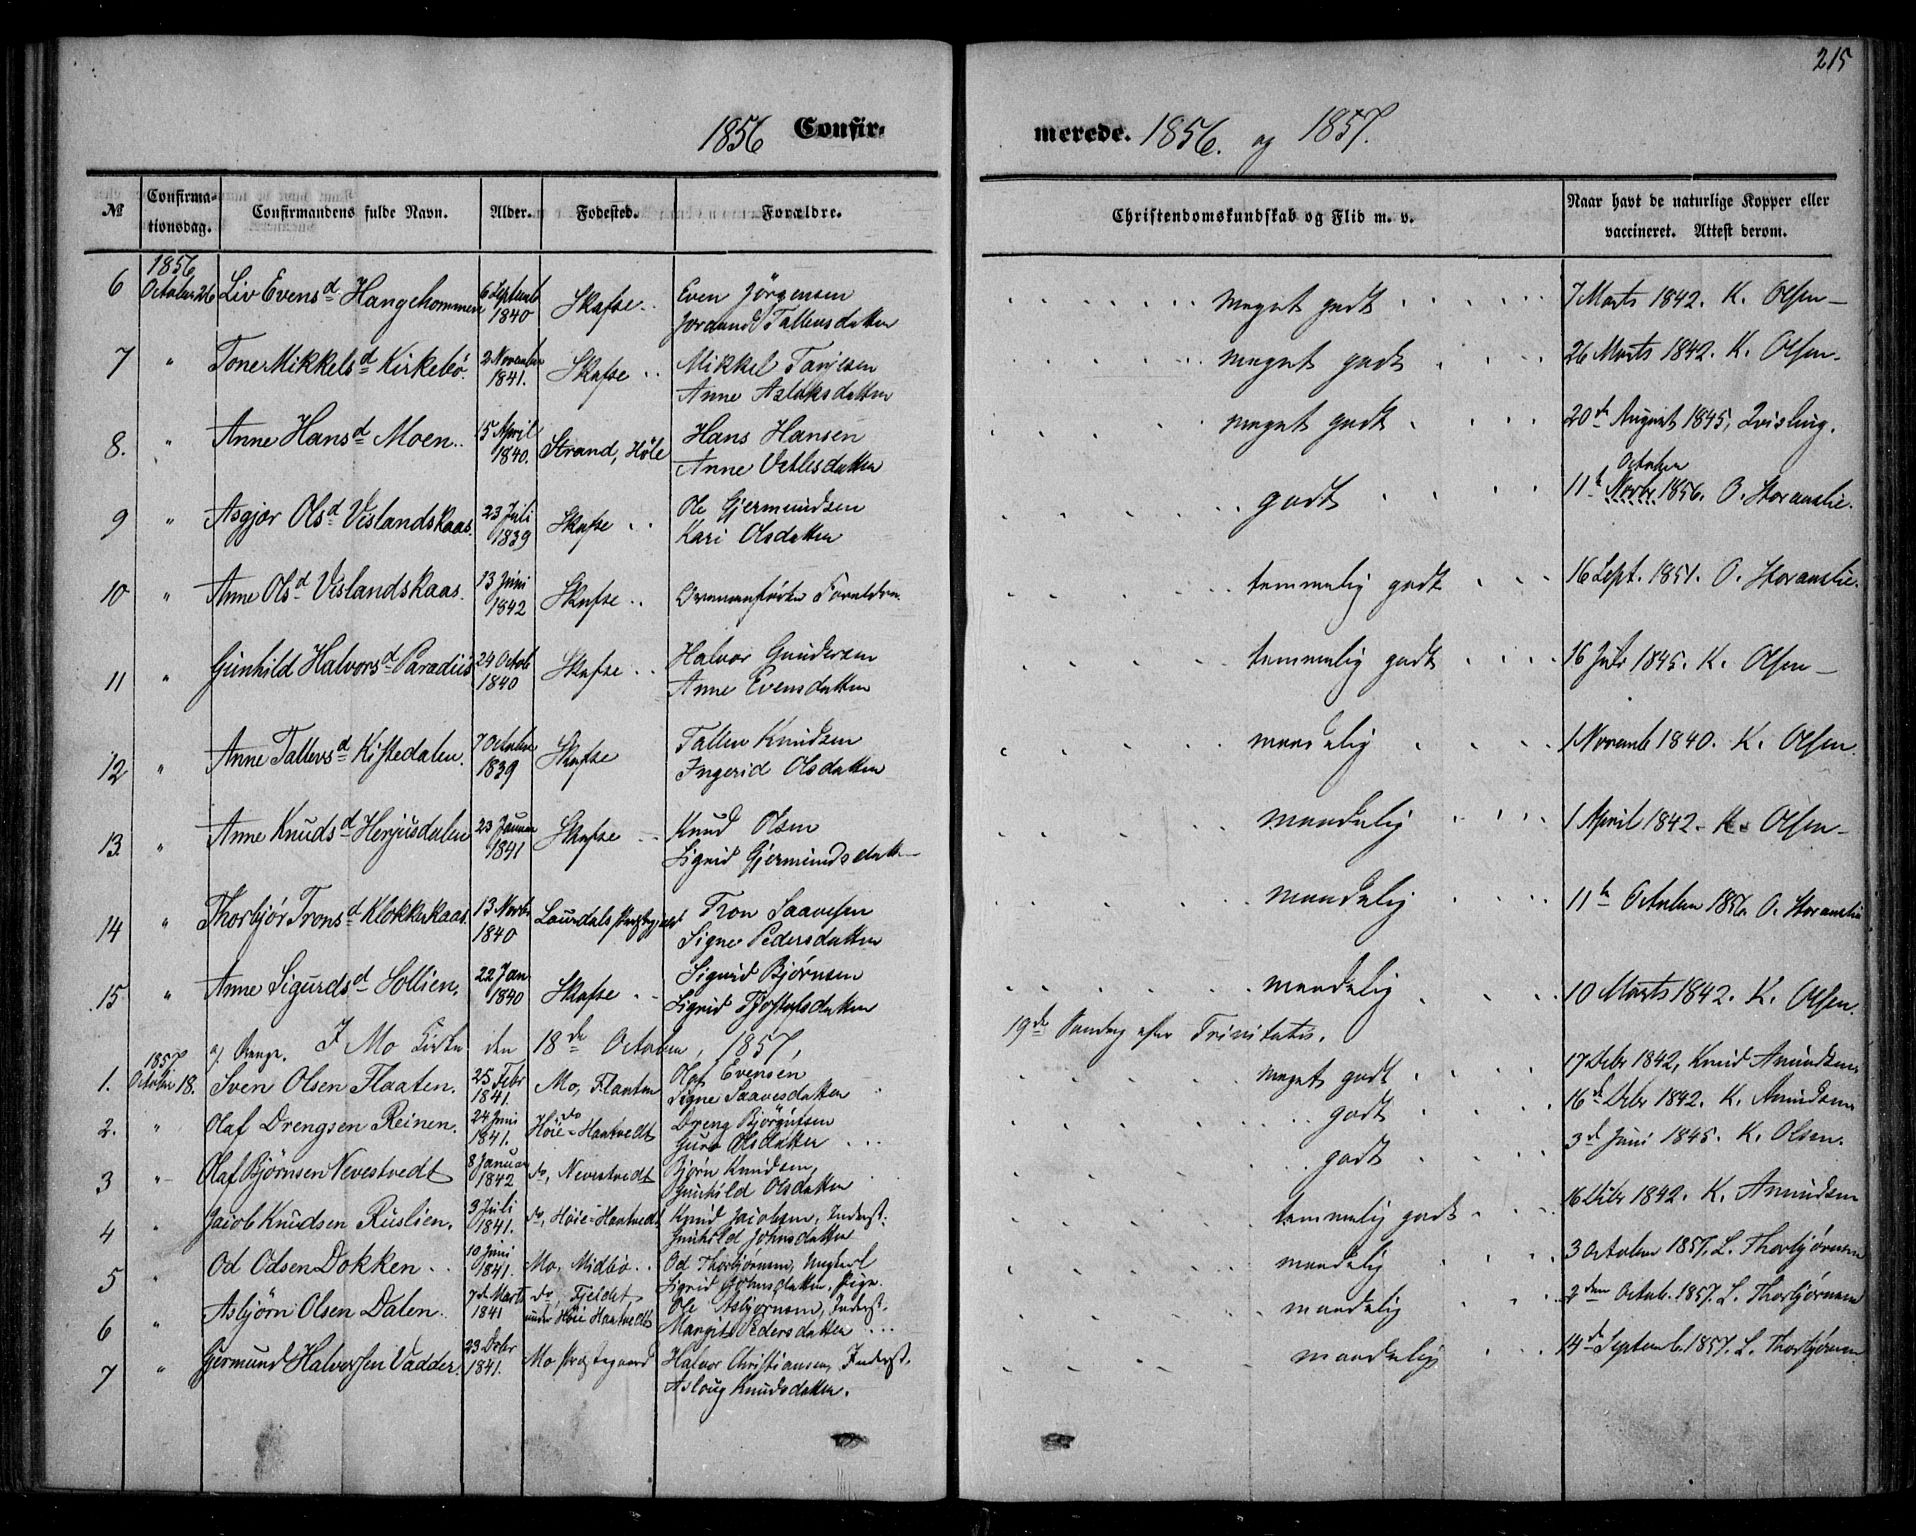 215
1856 Confir-
merede. 1856. og 1857.
№ Confirma-tionsdag. Confirmandens fulde Navn. Alder. Fødested. Forældre. Christendomskundskab og Flid m. v. Naar havt de naturlige Kopper eller vaccineret. Attest derom.
6 1856 October 26 Liv Evensd. Hangehommen 6 Septemb 1840 Skafse Even Jörgensen Jorand Tallevsdatter meget godt 7 Marts 1842. K. Olsen
7 " Tone Mikkelsd. Kirkebö. 2 November 1841. Skafse Mikkel Tarjesen Anne Aslaksdatter meget godt 26 Marts 1842. K. Olsen.
8. " Anne Hansd. Moen 15 April 1840. Strand, Höle Hans Hansen Anne Vetlesdatter meget godt 20de August 1845, Qvisling.
9 " Asgjør Olsd. Vislandskaas. 23 Juli 1839 Skafse Ole Gjermundsen Kari Olsdatter godt 11te October Novbr 1856. O. Storaaslie.
10 " Anne Olsd. Vislandskaas. 13 Juni 1842 Skafse Ovenanførte Forældre temmelig godt 16 Sept. 1851. O. Storaaslie.
11 " Gunhild Halvorsd. Paradiis 24 Octob 1840 Skafse Halvor Gundersen Anne Evensdatter temmelig godt 16 Juli 1845. K. Olsen
12 " Anne Tallevsd. Kistedalen. 7 October 1839 Skafse Tallev Knudsen Ingerid Olsdatter maadelig 1 Novemb 1840. K. Olsen.
13. " Anne Knudsd. Herjusdalen 23 Januar 1841 Skafse Knud Olsen Sigrid Gjermundsdatt maadelig 1 April 1842. K. Olsen
14 " Thorbjör Tronsd. Klokkerkaas. 13 Novbr 1840 Laurdals Præstegjeld Tron Saavesen Signe Pedersdatter maadelig 11te October 1856. O. Storaaslie
15 " Anne Sigurdsd. Sollien. 22 Jan 1840 Skafse Sigurd Bjørnsen Sigrid Tjostolsdatter maadelig 10 Marts 1842. K. Olsen.
a/. Drenge. I Mo Kirke den 18de October, 1857, 19de Søndag efter Trinitatis.
1. 1857 October 18. Sven Olsen Flaaten. 25 Febr 1841. Mo, Flaaten Olaf Evensen Signe Saavesdatter meget godt 17 Debr 1842, Knud Amundsen
2. " Olaf Drengsen Reinen. 24 Juni 1841. do Höie-Haatvedt Dreng Björgufsen Guro Olsdatter godt 16de Debr 1842. K. Amundsen
3 " Olaf Bjørnsen Nevestvedt 8 Januar 1842 do, Nevestvedt Bjørn Knudsen, Gunhild Olsdatter godt 3de Juni 1845. K. Olsen.
4 " Jacob Knudsen Ruslien. 3 Juli 1841. do, Höie-Haatvedt Knud Jacobsen, Inderst. Gunhild Johnsdatter temmelig godt 16 Debr 1842. K. Amundsen
5 " Od Odsen Dokken 10 Juni 1841. Mo, Midbø Od Thorbjørnsen, Ungkarl Sigrid Gjohnsdatter, Pige. maadelig 3 October 1857. L. Thorbjørnsen
6 " Asbjörn Olsen Dalen. 7de Marts 1841 do, Fjeldet under Höie Haatvedt Ole Asbjørnsen, Inderst. Margit Pedersdatter maadelig 2den Octob. 1857. L. Thorbjørnsen
7 " Gjermund Halvorsen Vadder. 23 Debr 1841. Mo Præstegaard Halvor Christiansen, Inderst. Aslaug Knudsdatter. maadelig 14de Septemb. 1857. L. Thorbjørnsen